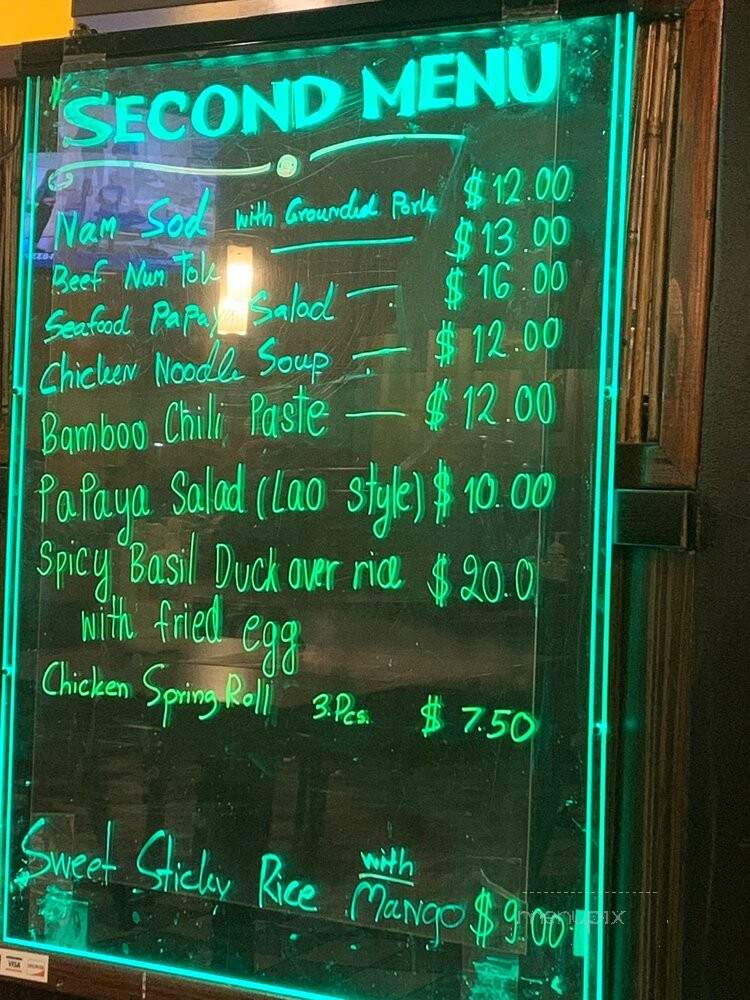 SECOND MENU
Nam Sod with Grounded Pork $12.00
Beef Num Tok $13.00
Seafood Papaya Salad $16.00
Chicken Noodle Soup $12.00
Bamboo Chili Paste $12.00
PaPaya Salad (Lao style) $10.00
Spicy Basil Duck over rice $20.0
with fried egg
Chicken Spring Roll 3.Pcs. $7.50
Sweet Sticky Rice with Mango $9.00
menupix
VISA